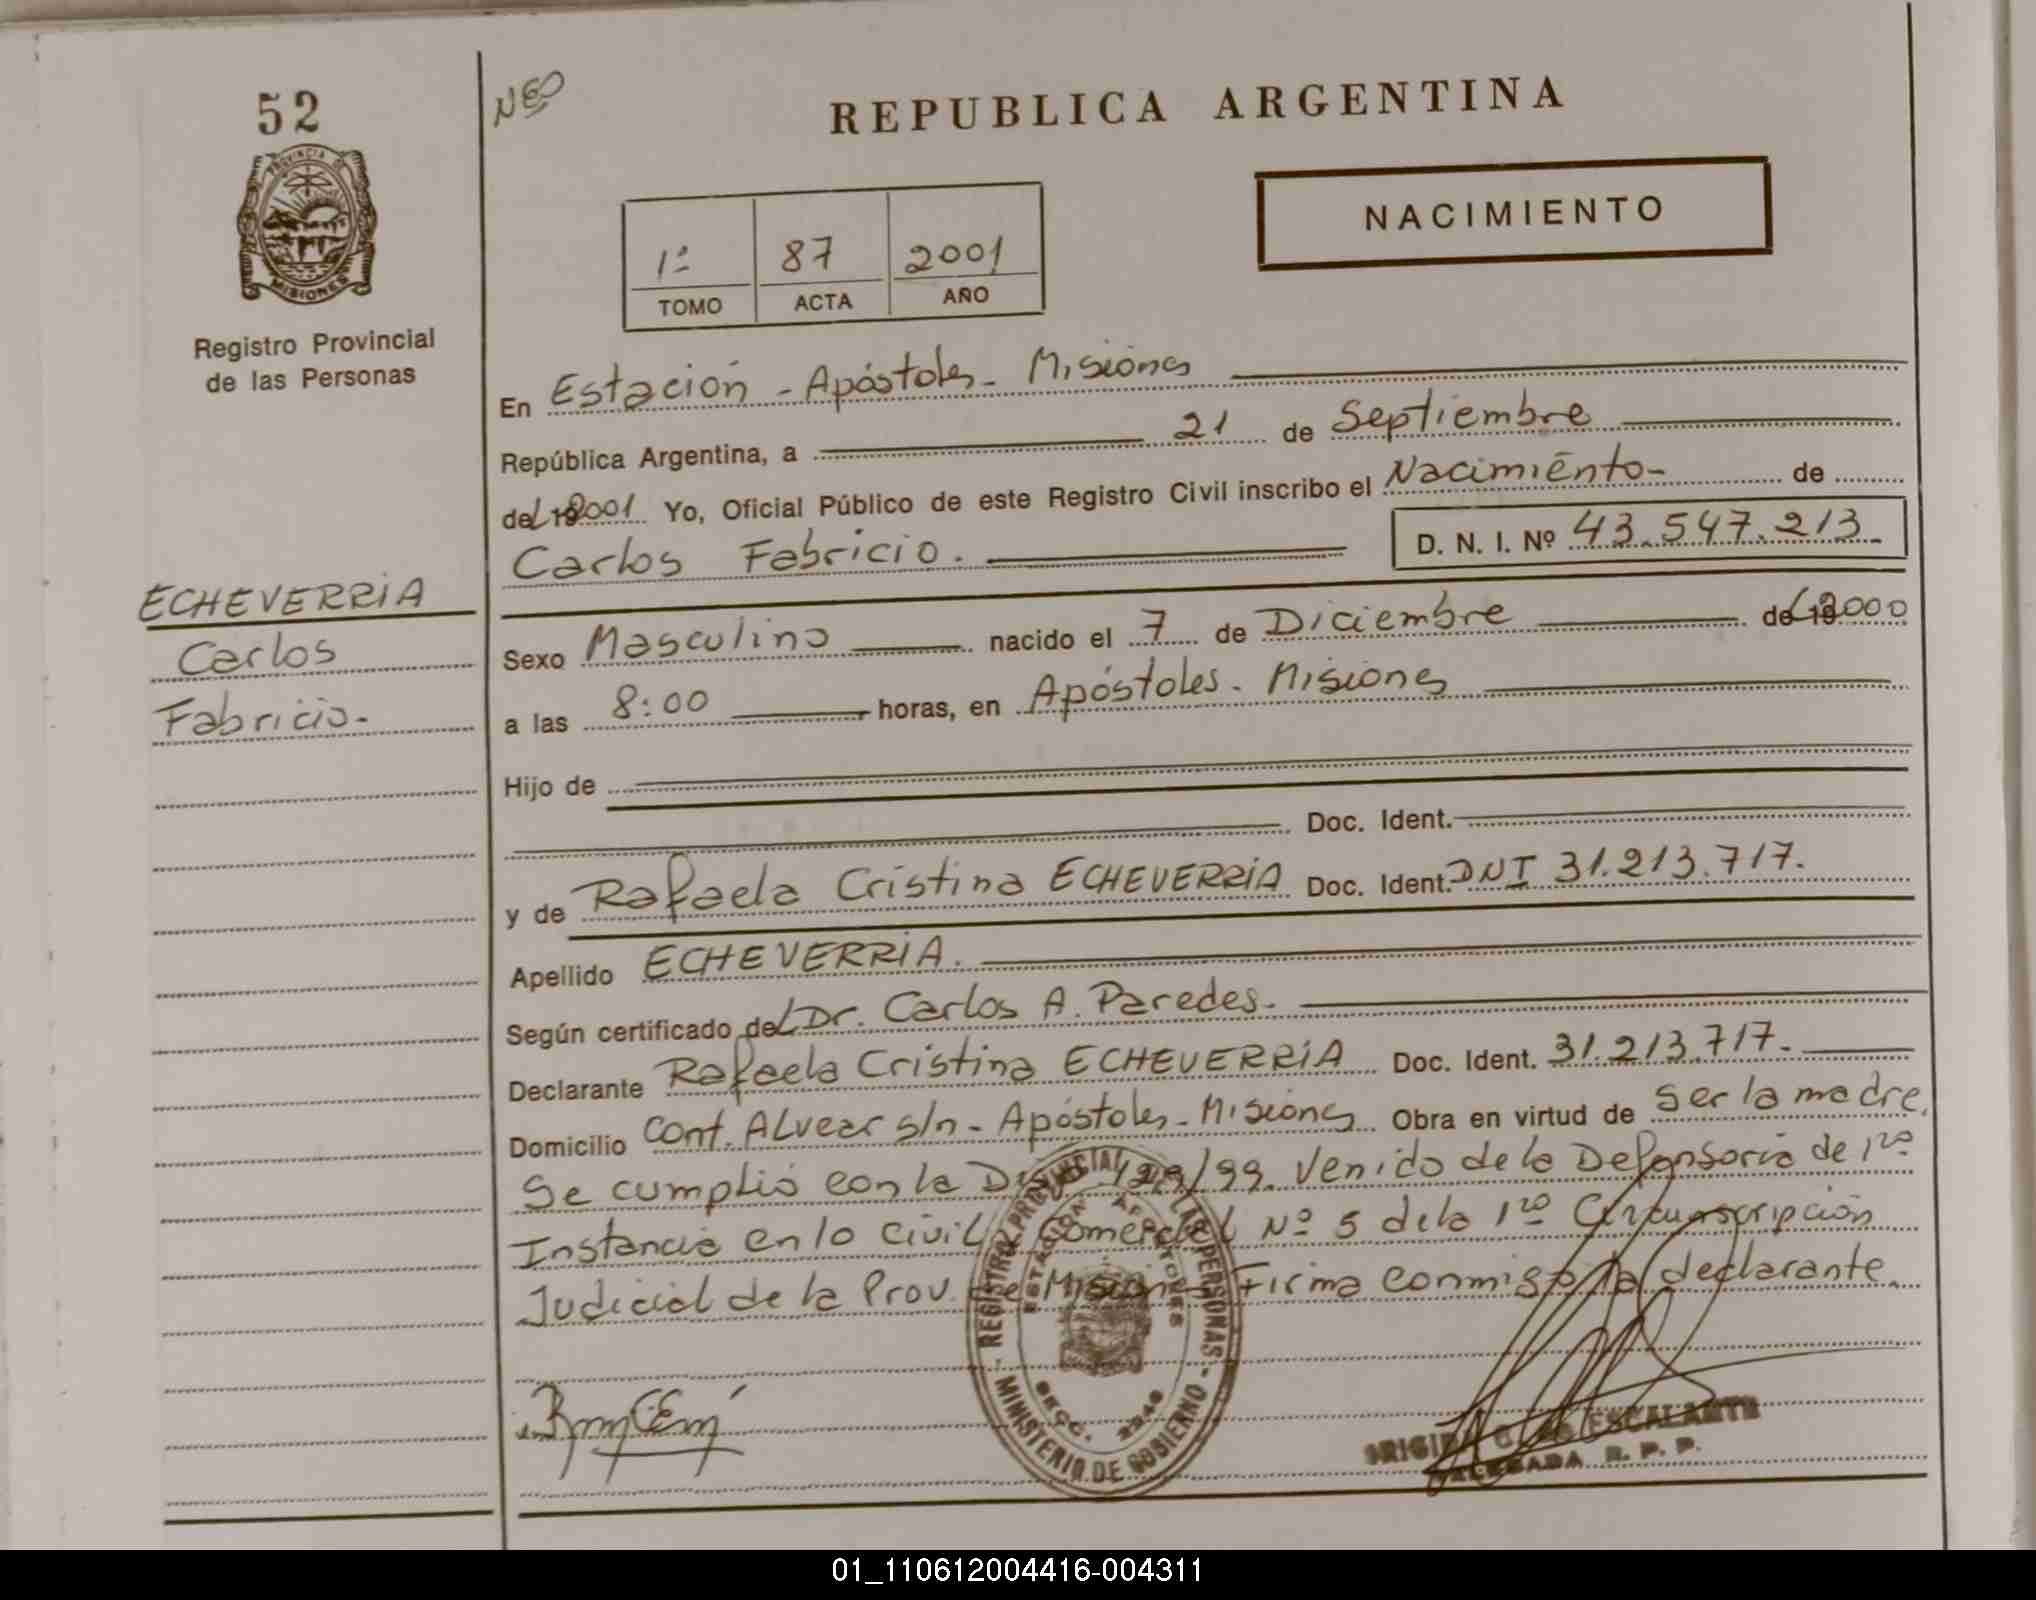 52
NEO
REPUBLICA ARGENTINA
PROVINCIA DE
MISIONES
NACIMIENTO
1º 87 2001
TOMO ACTA AÑO
Registro Provincial
de las Personas
En Estación - Apóstoles - Misiones
República Argentina, a 21 de Septiembre
del 2001 Yo, Oficial Público de este Registro Civil inscribo el Nacimiento - de
Carlos Fabricio. D. N. I. Nº 43.547.213
ECHEVERRIA
Carlos
Fabricio.-
Sexo Masculino nacido el 7 de Diciembre del 2000
a las 8:00 horas, en Apóstoles - Misiones
Hijo de
Doc. Ident.
y de Rafaela Cristina ECHEVERRIA Doc. Ident. DNI 31.213.717.
Apellido ECHEVERRIA.
Según certificado del Dr. Carlos A. Paredes.
Declarante Rafaela Cristina ECHEVERRIA Doc. Ident. 31.213.717.
Domicilio Cont. Alvear s/n - Apóstoles - Misiones Obra en virtud de ser la madre.
Se cumplió con la Disp. 129/99. Venido de la Defensoria de 1ra
Instancia en lo Civil y Comercial Nº 5 de la 1ra Circunscripción
Judicial de la Prov. de Misiones Firma conmigo la declarante
REGISTRO PROVINCIAL DE LAS PERSONAS - MINISTERIO DE GOBIERNO -
ESTACION APOSTOLES
SECC. 2240
ESCALANTE
DELEGADA R. P. P.
01_110612004416-004311